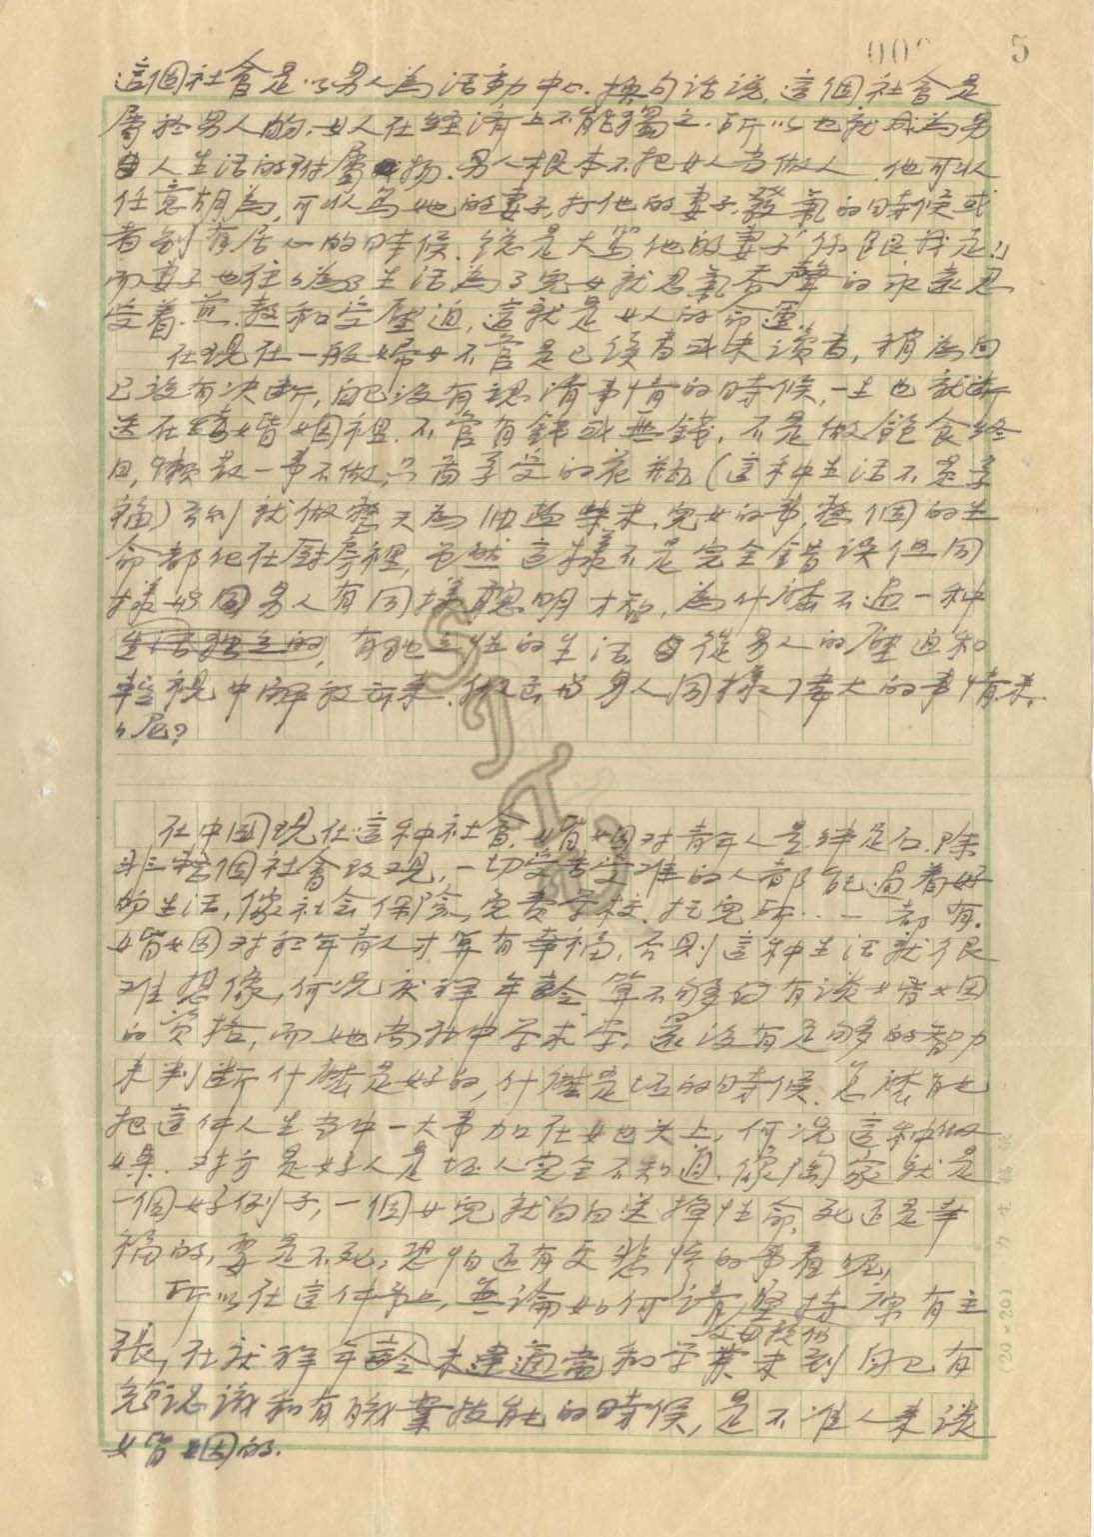 5
這個社會是以男人為活動中心.換句話說,這個社會是
屬於男人的.女人在經濟上不能獨立.所以也就成為男
人生活的附屬物.男人根本不把女人當做人,他可以
任意胡為,可以罵他的妻子,打他的妻子,發氣的時候或
者別有居心的時候,總是大罵他的妻子“你跟我走!”
而妻子也往往為了生活為了兒女就忍氣吞聲的永遠忍
受着煎熬和受壓迫,這就是女人的命運.
在現在一般婦女不管是已讀書或未讀書,稍為自
己沒有決斷,自己沒有認清事情的時候,一生也就斷
送在婚姻裡.不管有錢或無錢,不是做飽食終
日,懶散一事不做,只齒享受的花瓶(這种生活不是享
福)否則就做整天為油鹽柴米,兒女的事,整個的生
命都化在厨房裡,當然這樣不是完全錯誤但同
樣 男人有同樣聰明才智,為什麽不過一种
生活独立的,有独立性的生活,從男人的壓迫和
輕視中解放出來.做出与男人同樣偉大的事情來.
呢?
在中國現在這种社會,婚姻对青年人是絆足石.除
非整個社會改观,一切受苦受难的人都能過着好
的生活,像社会保險,免費学校,托兒所……都有.
婚姻对於年青人才算有幸福,否則這种生活就很
难想像,何况 年齡算不够的有談婚姻
的資格,而她尚在中学求学,還沒有足够的智力
来判断什麽是好的,什麽是坏的時候.怎麽能
把這件人生當中一大事加在她头上,何况這种做
媒.对方是好人是坏人完全不知道.像陶家就是
一個好例子,一個女兒就白白送掉性命,死还是幸
福的,要是不死,恐怕还有更悲惨的事看呢,
所以在這件事上,無論如何請堅持原有主
張,在 年齡未達適當和学業未到自己有
充份認識和有職業技能的時候,是不准人來談
婚姻的.
(20×20)